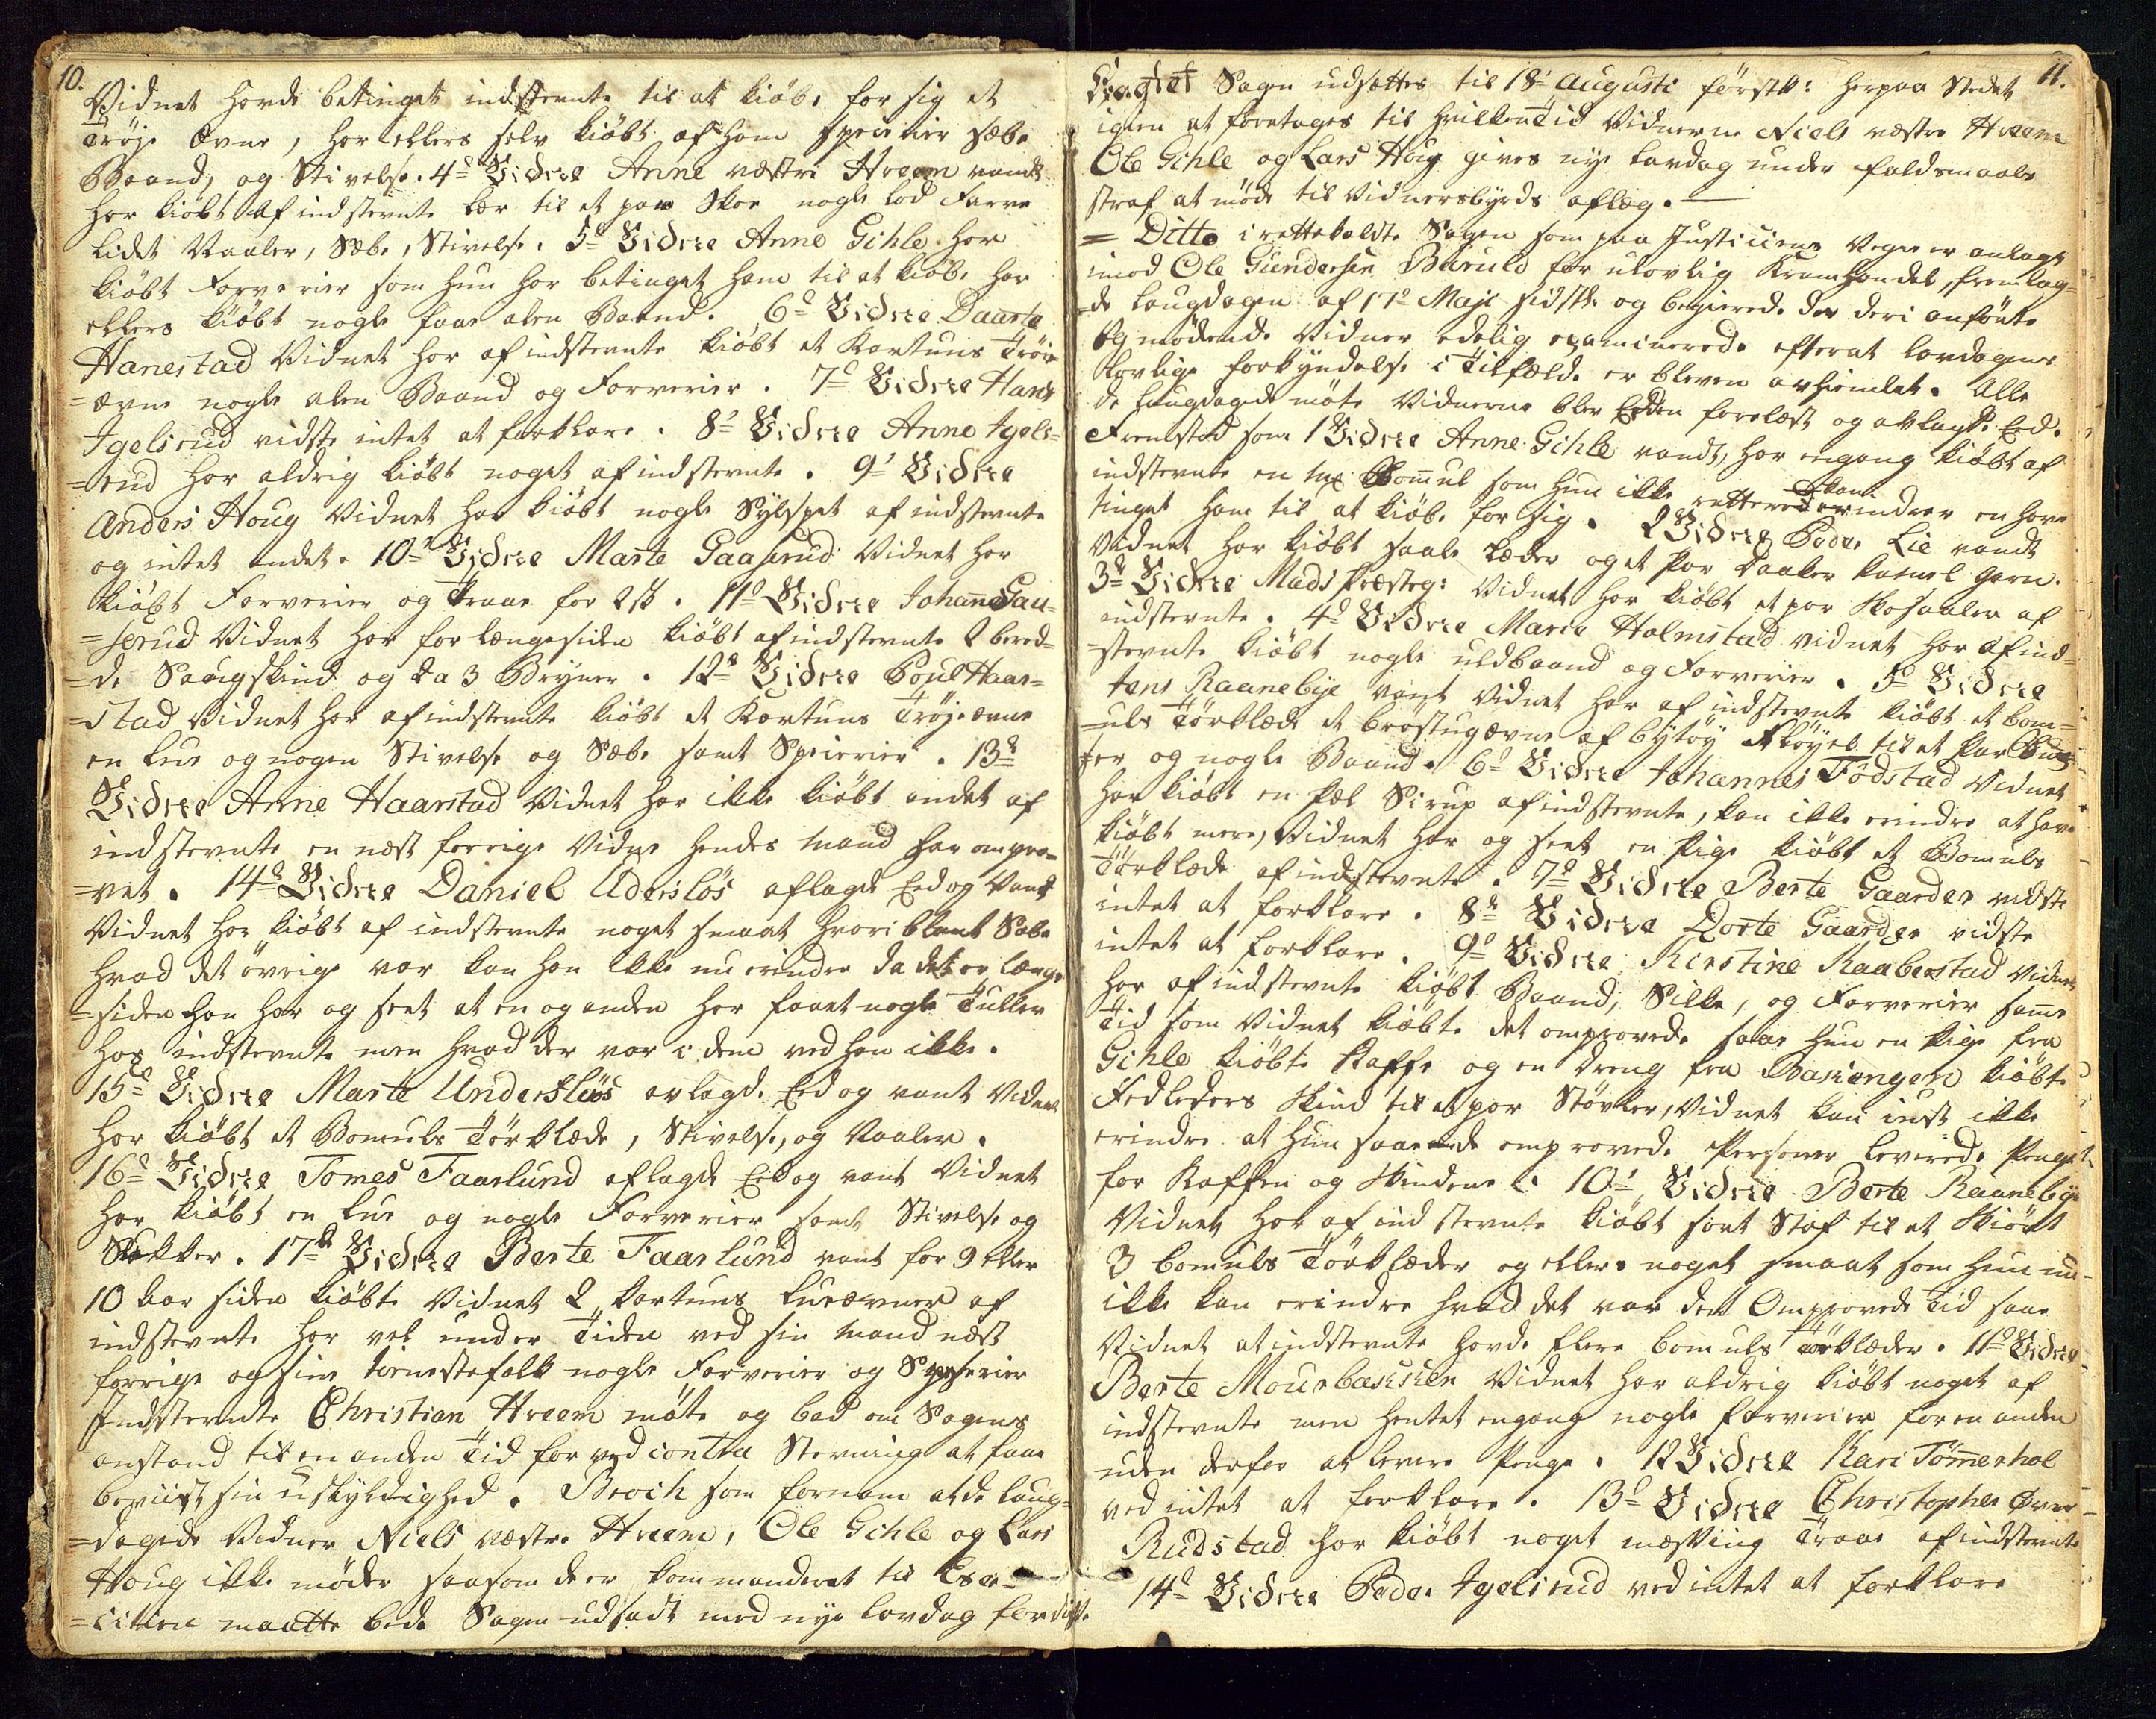 10.
Vidnet havde betinget indstevnte til at kiöbe for sig et
Tröje Ævne, har ellers selv kiöbt af ham speserier Sæbe
Baand, og Stivelse. 4de Vidne Anne vestre Hreem vandt
har kiöbt af indstevnte Lær til et par Skoe nogle Lod Farve
lidet Naaler, Sæbe, Stivelse. 5te Vidne Anne Gihle har
kiöbt Farverier som hun har betinget ham til at kiöbe har
ellers kiöbt nogle faae alen Baand. 6te Vidne Daarte
Hanestad Vidnet har af indstevnte kiöbt et Kartuns Tröie
=ævne nogle alen Baand og Farverier. 7de Vidne Hans
Igelsrud vidste intet at forklare. 8de Vidne Anne Igels=
=rud har aldrig kiöbt noget af indstevnte. 9de Vidne
Anders Houg Vidnet har kiöbt nogle Sylspet af indstevnte
og intet andet. 10de Vidne Marte Gaaserud Vidnet har
kiöbt Farverier og Traae for 2 sk. 11te Vidne Johanne Gau=
=serud Vidnet har for længesiden kiöbt af indstevnte 2 bered=
=de Saugskind og 2 a 3 Bryner. 12te Vidne Poul Haar=
=stad Vidnet har af indstevnte kiöbt et Kartuns Tröjeævne
en Lue og nogen Stivelse og Sæbe samt Speserier. 13de
Vidne Anne Haarstad Vidnet har ikke kiöbt andet af
indstevnte en næst forrige Vidne hendes Mand har ompro=
=vet. 14de Vidne Daniel Udersløs aflagde Eed og Vandt
Vidnet har kiöbt af indstevnte noget smaat hvoriblant Sæbe
hvad det övrige var kan han ikke nu erindre da det er længe
=siden han har og seet at en og anden har faaet nogle Tuller
hos indstevnte men hvad der var i dem ved han ikke.
15de Vidne Marte Undersløs avlagde Eed og vant Vidnet
har kiöbt et Bomuls Törklæde, Stivelse, og Naaler.
16de Vidne Tomes Faarlund aflagde Eed og vant Vidnet
har kiöbt en Lue og nogle Farverier samt Stivelse og
Sukker. 17de Vidne Berte Faarlund vant for 9 eller
10 Aar siden kiöbte Vidnet 2 Kartuns Lueævner af
indstevnte har vel under Tiden ved sin Mand næst
forrige og sine tienestefolk nogle Farverier og Speserier
Indstevnte Christian Hreem möte og bad om Sagens
anstand til en anden Tid for ved contra Stevning at faae
beviist sin uskyldighed. Broch som fornam at de laug=
=dagede Vidner Niels vestre Hreem, Ole Gihle og Lars
Houg ikke möder saasom de er kommanderet til Exer=
=citien maatte bede Sagen udsadt med nye lavdag for disse
11.
Eragtet Sagen udsættes til 18de Augusti førstk: herpaa Stedet
igien at foretages til hvilken Tid Vidnerne Niels vestre Hreem
Ole Gihle og Lars Houg gives nye Lavdag under faldsmaals
straf at möde til Vidnersbyrds aflæg.
= Ditto i rettekaldte Sagen som paa Justitiens Vegne er anlagt
imod Ole Gundersen Baruld for ulovlig Kramhandel, fremlag=
=de laugdagen af 17de Maji sidstl. og begierede der deri anförte
og mödende Vidner edelig examinerede efterat lavdagens
lovlige forkyndelse i Tilfælde er bleven avhiemlet. Alle
de laugdagede möte Vidnerne blev Eeden forelæst og avlagde Eed.
Fremstod som 1 Vidne Anne Gihle vandt, har engang kiöbt af
indstevnte en Bomul som hun ikke rettere kan erindrer en have
tinget ham til at kiöbe for sig. 2 Vidne Peder Lie vandt
Vidnet har kiöbt saale Læder og et Par Daaler kamel garn.
3de Vidne Mads Præsteg: Vidnet har kiöbt et par Skosaaler af
indstevnte. 4de Vidne Maria Holmstad vidnet har af ind=
=stevnte kiöbt nogle uldbaand og Farverier. 5te Vidne
Jens Raanebye vant Vidnet har af indstevnte kiöbt et bom=
=uls Törklæde et bröstugævne af bytöy Flöyel til et par Bux=
=er og nogle Baand. 6te Vidne Johannes Födstad Vidnet
har kiöbt en Pæl Sirup af indstevnte, kan ikke erindre at have
kiöbt mere, Vidnet har og seet en Pige kiöbt et Bomuls
Törklæde af indstevnte. 7de Vidne Berte Gaarder vidste
intet at forklare. 8de Vidne Dorte Gaarder vidste
intet at forklare. 9de Vidne Kirstine Kaaberstad Vidnet
har af indstevnte kiöbt Baand, Silke, og Farverier samme
Tid som Vidnet kiöbte det omprovede saae hun en Pige fra
Gihle kiöbte Kaffe og en dreng fra Baskengen kiöbte
Fedleders Skind til et par Støvler, Vidnet kan iust ikke
erindre at hun saae de omprovede Personer leverede Penge
for Kaffen og Skindene. 10de Vidne Berte Raanebye
Vidnet har af indstevnte kiöbt sort Stof til et Skiört
3 bomuls Törklæder og ellers noget smaat som hun nu
ikke kan erindre hvad det var den Omprovede Tid saae
Vidnet at indstevnte havde flere bomuls Törklæder. 11te Vidne
Berte Mourbækken Vidnet har aldrig kiöbt noget af
indstevnte men hentet engang nogle farverier for en anden
uden derfor at levere Penge. 12 Vidne Kari Tømmerhol
ved intet at forklare. 13de Vidne Christopher Øvre
Rudstad har kiöbt noget mæssing Traae af indstevnte
14de Vidne Peder Igelsrud ved intet at forklare